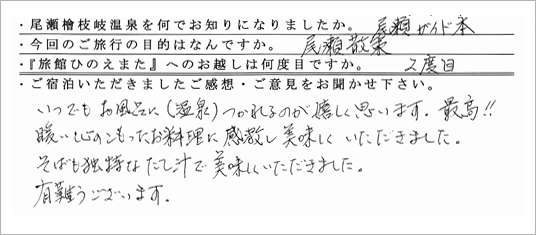 ・尾瀬檜枝岐温泉を何でお知りになりましたか。 尾瀬ガイド本
・今回のご旅行の目的はなんですか。 尾瀬散策
・『旅館ひのえまた』へのお越しは何度目ですか。 2度目
・ご宿泊いただきましたご感想・ご意見をお聞かせ下さい。
いつでもお風呂に(温泉)つかれるのが嬉しく思います。最高!!
暖い心のこもったお料理に感激し美味しくいただきました。
そばも独特なだし汁で美味しくいただきました。
有難うございます。